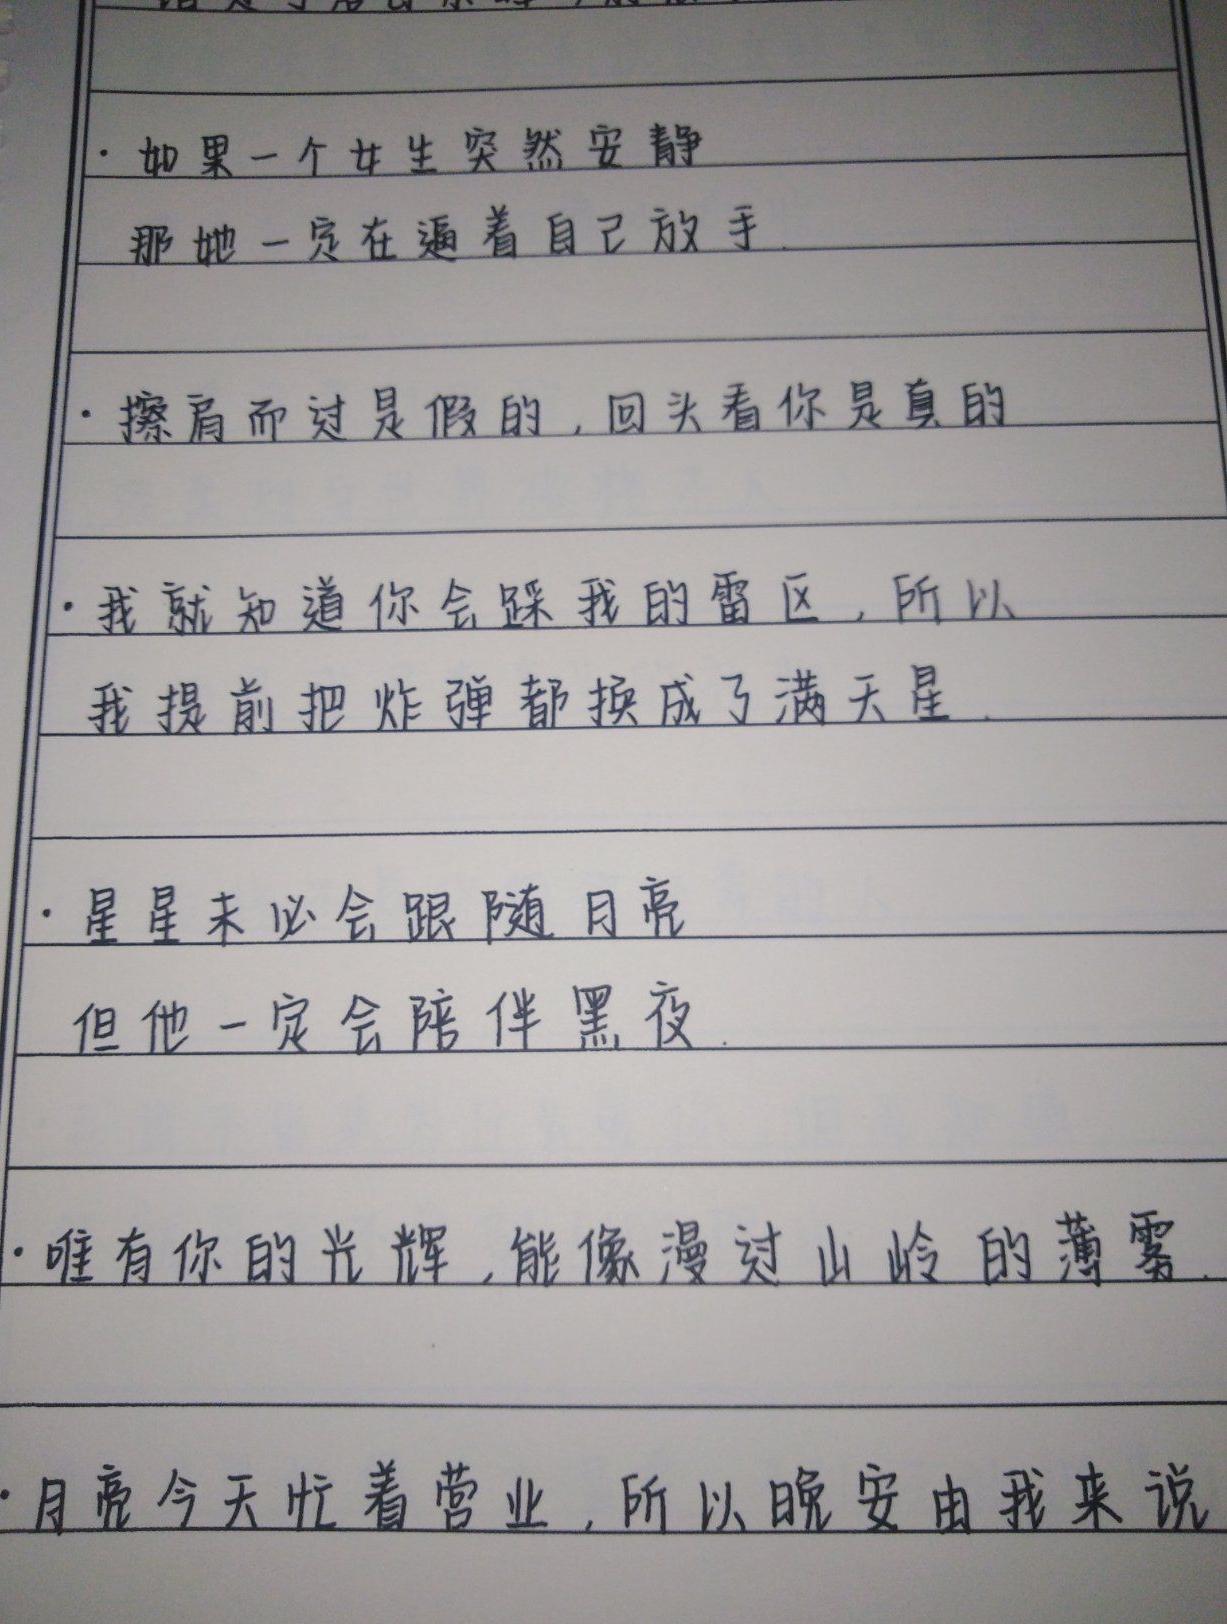 · 如果一个女生突然安静
那她一定在逼着自己放手.
· 擦肩而过是假的,回头看你是真的
· 我就知道你会踩我的雷区,所以
我提前把炸弹都换成了满天星.
· 星星未必会跟随月亮
但他一定会陪伴黑夜.
· 唯有你的光辉,能像漫过山岭的薄雾.
· 月亮今天忙着营业,所以晚安由我来说